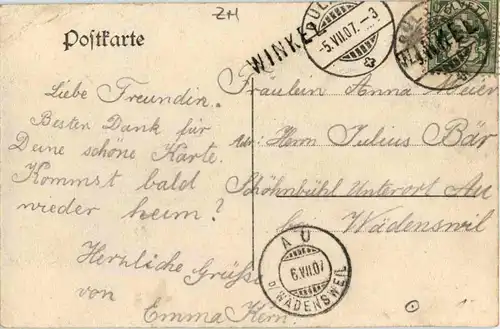 ZH
Postkarte
WINKEL
5.VII.07.-3
WINKEL
Liebe Freundin.
Besten Dank für
Deine schöne Karte.
Kommst bald
wieder heim?
Herzliche Grüsse
von
Emma Kern.
Fräulein Anna Meier
Adr: Herrn Julius Bär
Schönbühl Unterort Au
Wädenswil
AU
6.VII.07
b/WÄDENSWEIL